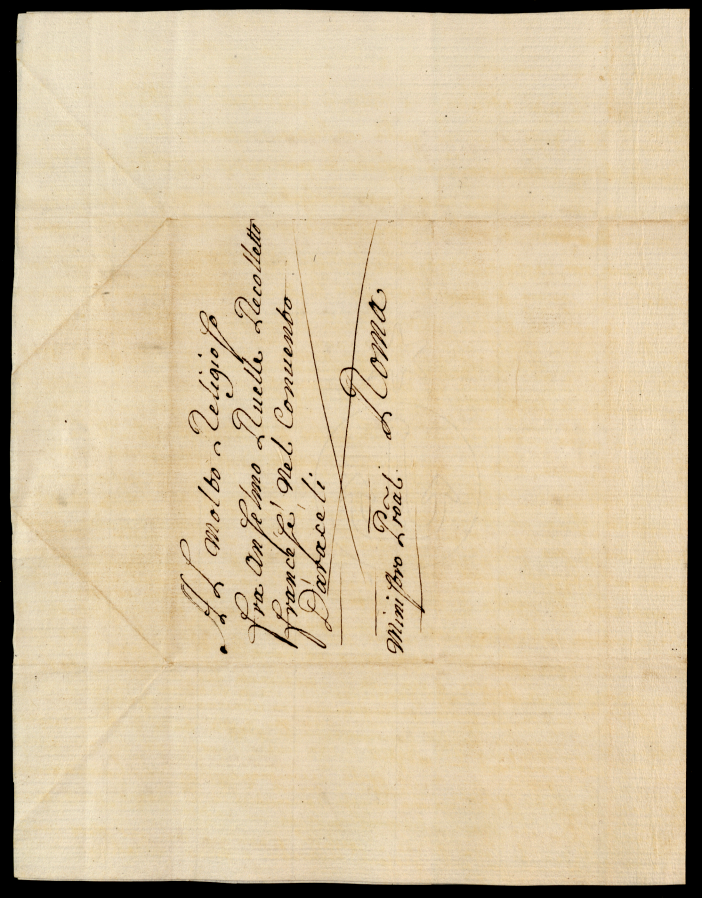 Al Molto Religioso
fra Anselmo Ruelle Recolletto
francese nel Conuento
D'araceli
Roma
Ministro Proãl